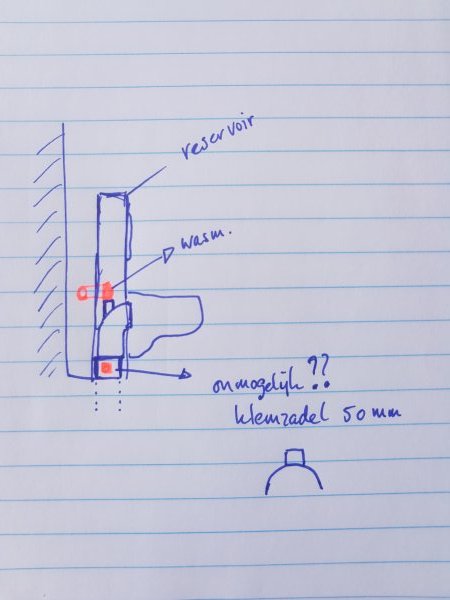 reservoir
wasm.
onmogelijk ??
klemzadel 50 mm